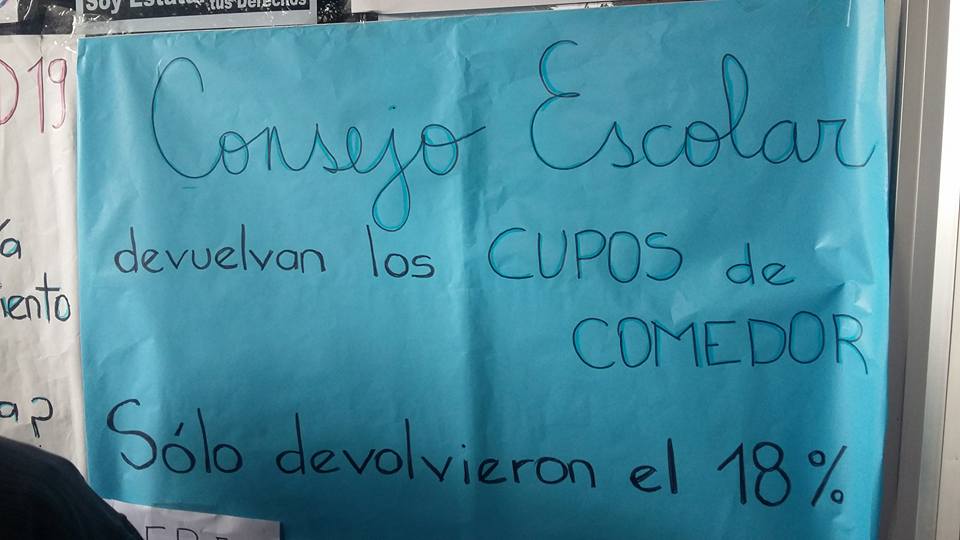 Soy Estatal
tus Derechos
19
iento
a?
Consejo Escolar
devuelvan los CUPOS de
COMEDOR
Sólo devolvieron el 18%